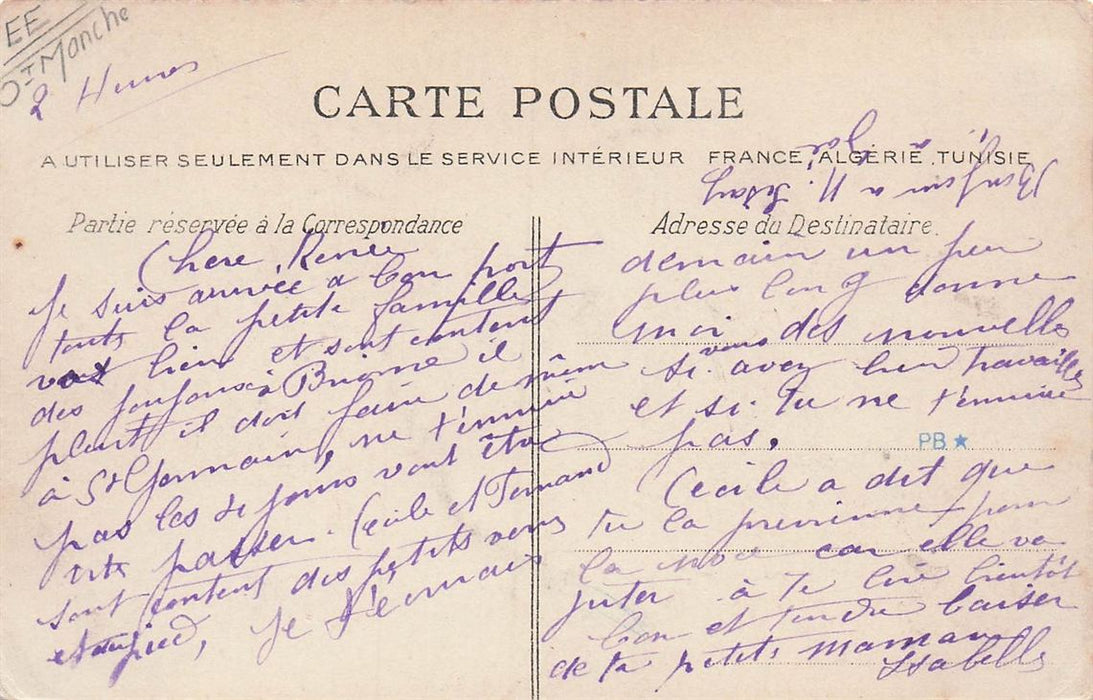 EE
St Manche
2 Heures
CARTE POSTALE
A UTILISER SEULEMENT DANS LE SERVICE INTÉRIEUR FRANCE, ALGÉRIE, TUNISIE
Partie réservée à la Correspondance
Chere Renée
Je suis arrivée a bon port
toute la petite famille
vas bien et sont content
des joujoux à Brionne il
pleut il doit faire de même
à St Germain, ne t'ennuie
pas les 2 jours vont être
vite passer. Cecile et Fernand
sont content des petits verres
et au pied, je t'écrirais
Adresse du Destinataire.
demain un peu
plus long donne
moi des nouvelles
si vous avez bien travailler
et si tu ne t'ennuie
pas.
PB
Cecile a dit que
tu la previenne pour
la noce car elle va
juter à te lire bientôt
bon et tendre baiser
de ta petite maman
Isabelle
Bonjour a